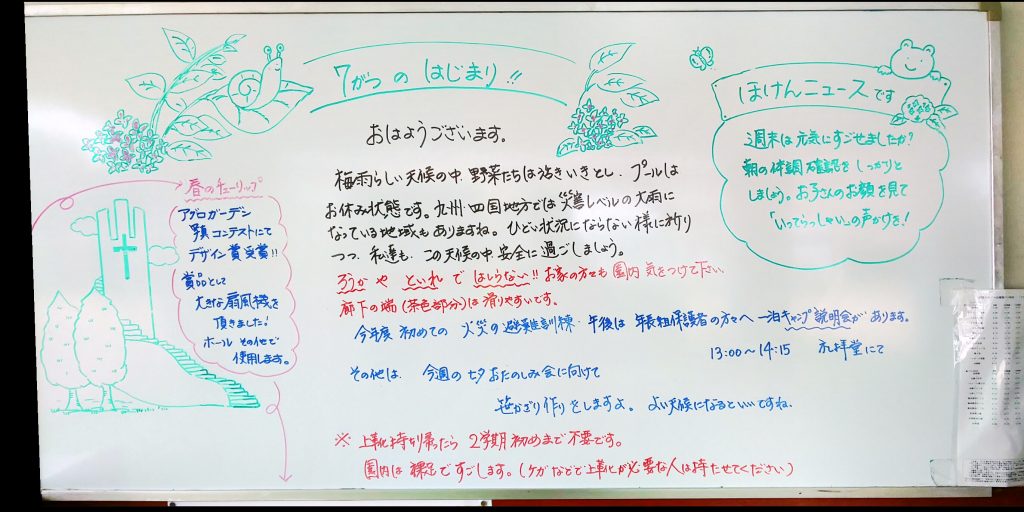 7がつ の はじまり!!
おはようございます。
梅雨らしい天候の中、野菜たちは活きいきとし、プールは
お休み状態です。九州・四国地方では災害レベルの大雨に
なっている地域もありますね。ひどい状況にならない様に祈り
つつ、私達も、この天候の中、安全に過ごしましょう。
ろうか や といれ で はしらない!! お家の方々も 園内 気をつけて下さい。
廊下の端(茶色部分)は滑りやすいです。
今年度 初めての 火災の避難訓練・午後は 年長組保護者の方々へ 一泊キャンプ説明会があります。
13:00〜14:15 礼拝堂にて
その他は、今週の七夕おたのしみ会に向けて
笹かざり作りをしますよ。よい天候になるといいですね。
※ 上靴持ち帰ったら 2学期初めまで不要です。
園内は 裸足ですごします。(ケガなどで上靴が必要な人は持たせてください)
春のチューリップ
アグロガーデン
コンテストにて
デザイン賞受賞!!
賞品として
大きな扇風機を
頂きました!
ホール その他で
使用します。
ほけんニュースです
週末は元気にすごせましたか?
朝の体調確認をしっかりと
しましょう。お子さんのお顔を見て
「いってらっしゃい」の声かけを!